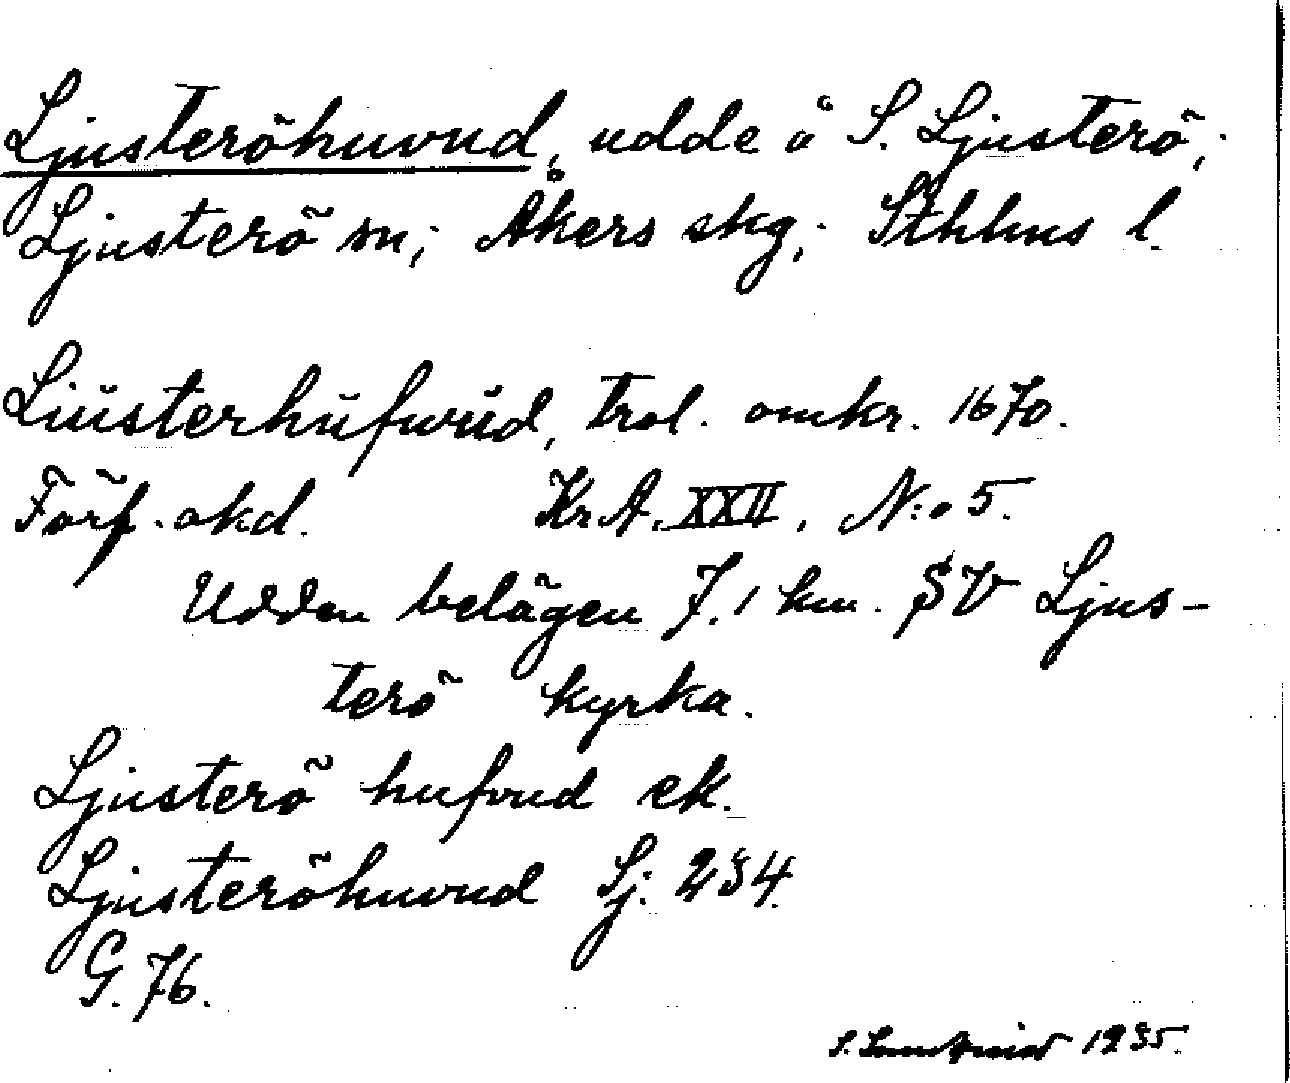 Ljusteröhuvud, udde å S. Ljusterö;
Ljusterö sn; Åkers skg; Sthlms l.
Liústerhúfwúd, trol. omkr. 1670.
Förf. okd. Kr.A. XXII, N:o 5.
Udden belägen 7.1 km. SV Ljus-
terö kyrka.
Ljusterö hufvud ek.
Ljusteröhuvud Sj. 234.
G. 76.
S. 1935.